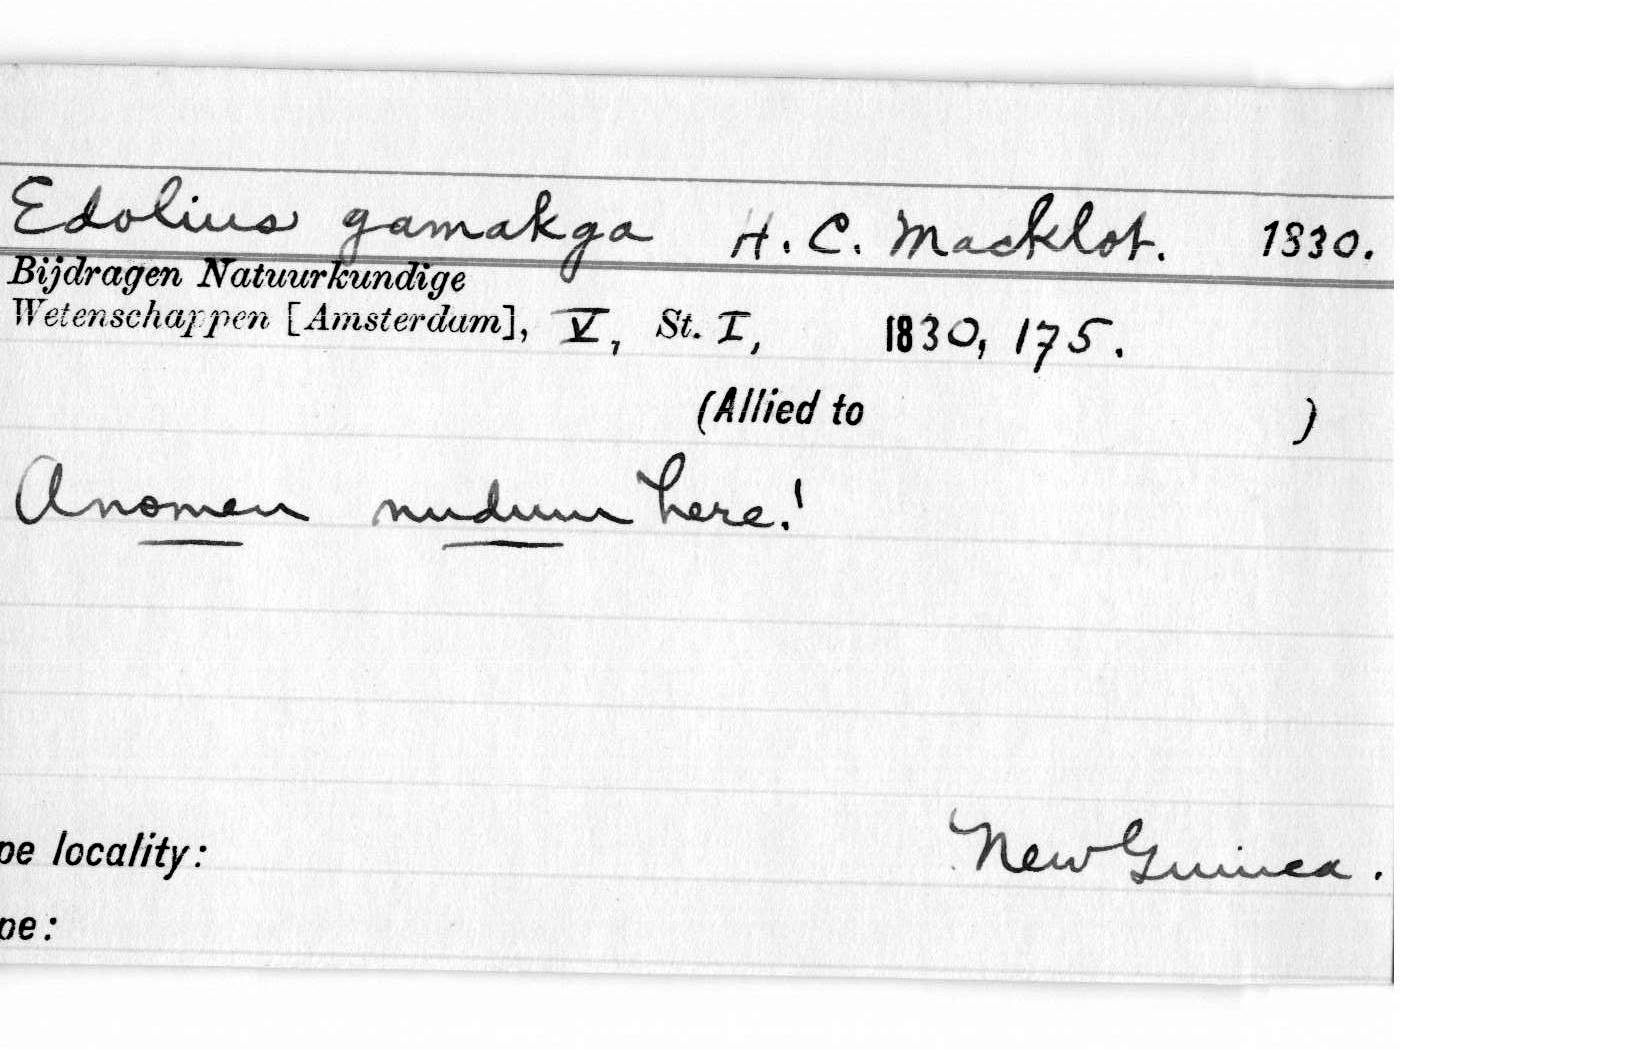 Edolius gamakga H. C. Macklot. 1830.
Bijdragen Natuurkundige
Wetenschappen [Amsterdam], V, St. I, 1830, 175.
(Allied to )
A nomen nudum here!
pe locality: New Guinea.
pe: